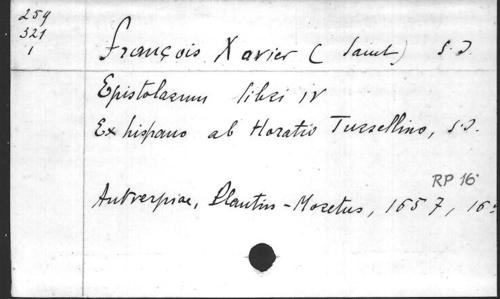 259
321
1
François Xavier (Saint) S.J.
Epistolarum libri IV
Ex hispano ab Horatio Tursellino, S.J.
RP 16
Antverpiae, Plantin-Moretus, 1657, 16